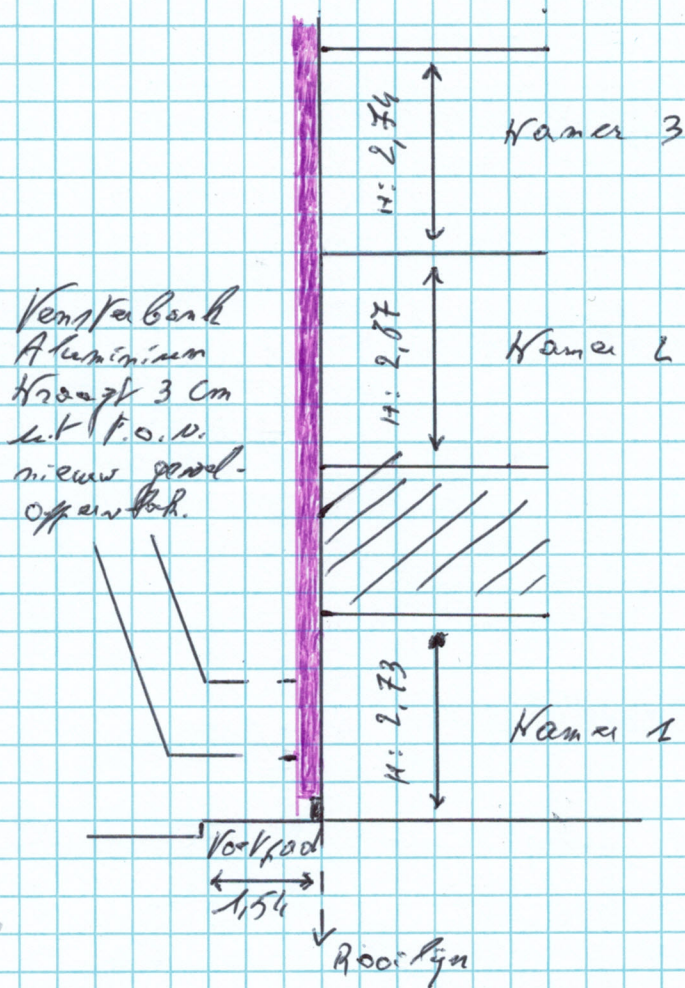 H: 2,74
Kamer 3
Vensterbank
Aluminium
Kraagt 3 cm
uit t.o.v.
nieuw gevel-
oppervlak.
H: 2,67
Kamer 2
H: 2,73
Kamer 1
Voetpad
1,54
Rooilijn